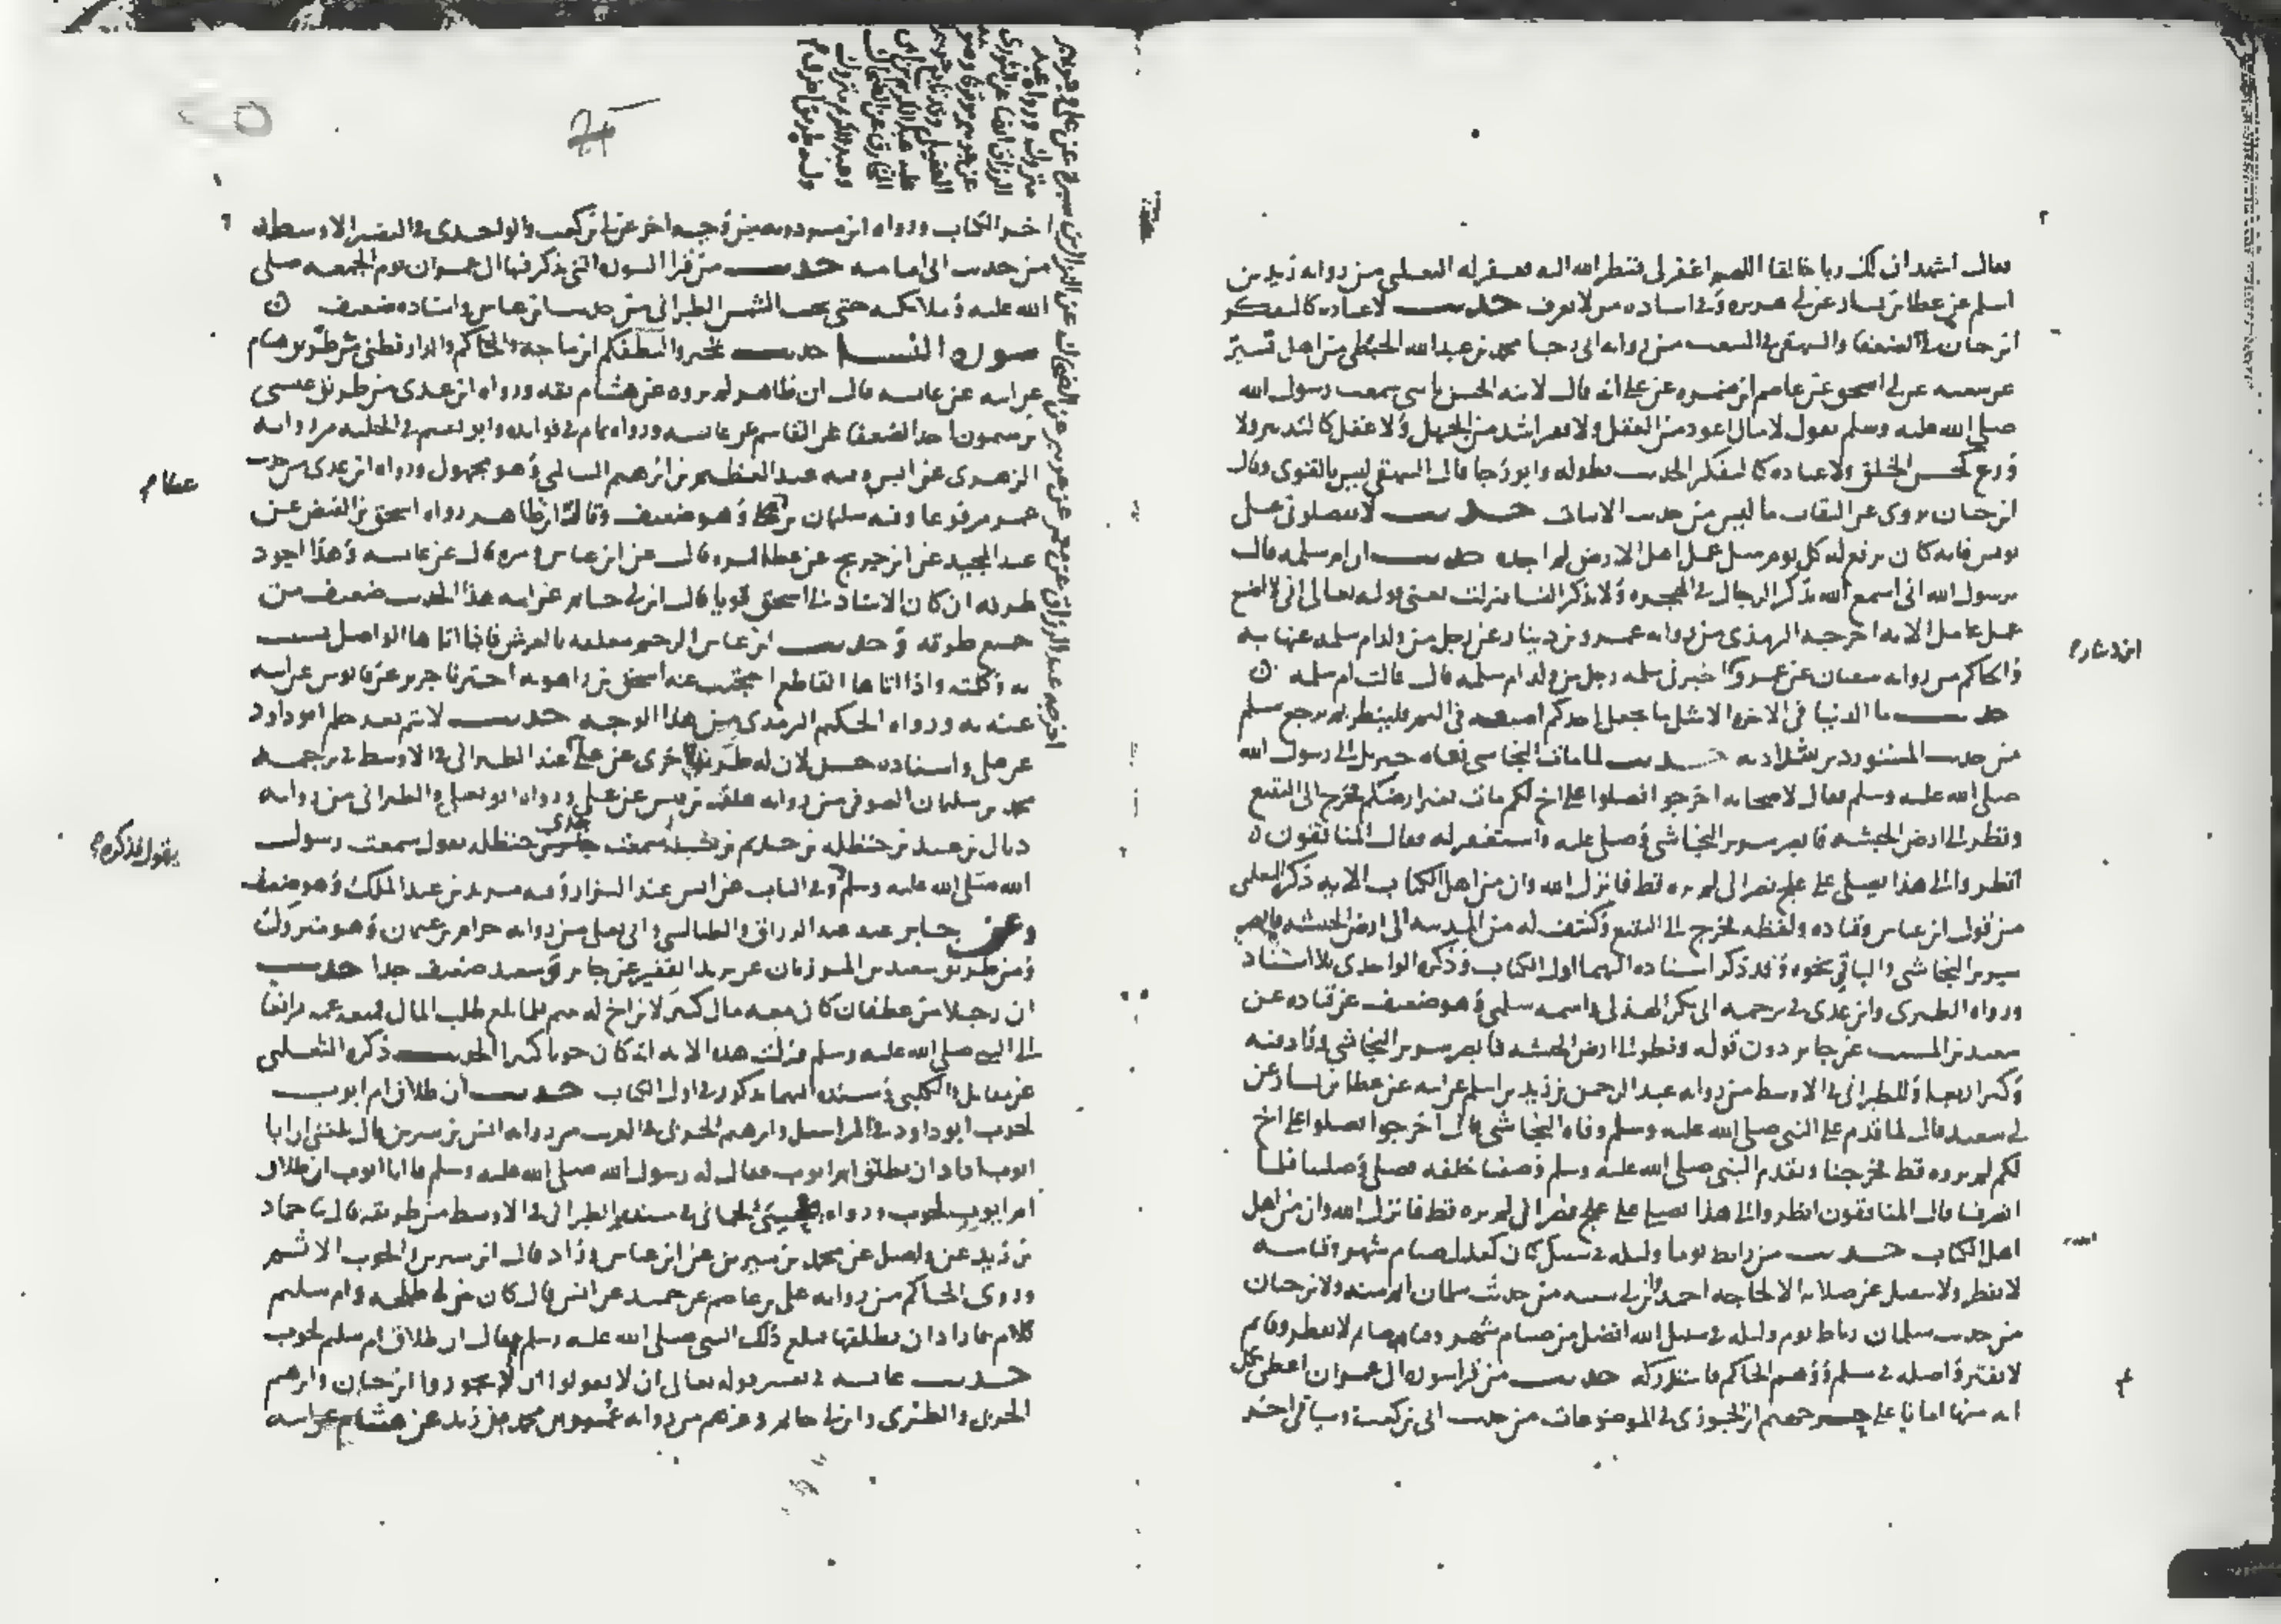 فقال اشهد ان لك ربا خالقا اللهم اغفر لى فنظر الله اليه فغفر له الثعلبى من رواية زيد بن
اسلم عن عطا بن يسار عن ابى هريره وفى اسناده من لا يعرف حديث لا عباده كالتفكر
ابن حبان فى الضعفا والبيهقى فى الشعب من رواية ابى رجا محمد بن عبد الله الحبطى من اهل تستر
عن شعبه عن ابى اسحق عن عاصم بن ضمره عن على انه قال لابنه الحسن يا بنى سمعت رسول الله
صلى الله عليه وسلم يقول لا مال اعود من العقل ولا فقر اشد من الجهل ولا عقل كالتدبير ولا
ورع كحسن الخلق ولا عباده كالتفكر الحديث بطوله وابو رجا قال البيهقى ليس بالقوى وقال
ابن حبان يروى عن الثقات ما ليس من حديث الاثبات حديث لا تفضلونى على
يونس فانه كان يرفع له كل يوم مثل عمل اهل الارض لم اجده حديث ان ام سلمه قالت
يرسول الله انى اسمع الله يذكر الرجال فى الهجره ولا يذكر النسا فنزلت يعنى قوله تعالى انى لا اضيع
عمل عامل الايه اخرجه الترمذى من رواية عمرو بن دينار عن رجل من ولد ام سلمه عنها به
والحاكم من رواية سفيان عن عمرو اخبرنى سلمه رجل من ولد ام سلمه قال قالت ام سلمه
حديث ما الدنيا فى الاخره الا مثل ما يجعل احدكم اصبعه فى اليم فلينظر بم يرجع مسلم
من حديث المستورد بن شداد به حديث لما مات النجاشى نعاه جبريل الى رسول الله
صلى الله عليه وسلم فقال لاصحابه اخرجوا فصلوا على اخ لكم مات بغير ارضكم فخرج الى البقيع
ونظر الى ارض الحبشه فابصر سرير النجاشى وصلى عليه واستغفر له فقال المنافقون
انظروا الى هذا يصلى على علج نصرانى لم يره قط فانزل الله وان من اهل الكتاب الايه ذكره الثعلبى
من قول ابن عباس وقتاده ولفظه فخرج الى البقيع وكشف له من المدينه الى ارض الحبشه فابصر
سرير النجاشى والباقى نحوه وقد ذكر اسناده اليهما اول الكتاب وذكره الواحدى بلا اسناد
ورواه الطبرى وابن عدى فى ترجمة ابى بكر الهذلى واسمه سلمى وهو ضعيف عن قتاده عن
سعيد بن المسيب عن جابر دون قوله ونظر الى ارض الحبشه فابصر سرير النجاشى وزاد فيه
وكبر اربعا وللطبرانى فى الاوسط من رواية عبد الرحمن بن زيد بن اسلم عن ابيه عن عطا بن يسار عن
ابى سعيد قال لما قدم على النبى صلى الله عليه وسلم وفاه النجاشى قال اخرجوا فصلوا على اخ
لكم لم تروه قط فخرجنا وتقدم النبى صلى الله عليه وسلم وصفنا خلفه فصلى وصلينا فلما
انصرفنا قال المنافقون انظروا الى هذا يصلى على علج نصرانى لم يره قط فانزل الله وان من اهل
اهل الكتاب حديث من رابط يوما وليله فى سبيل الله كان كعدل صيام شهر وقيامه
لا يفطر ولا ينفتل عن صلاته الا لحاجه احمد وابن ابى شيبه من حديث سلمان
من حديث سلمان رباط يوم وليله فى سبيل الله افضل من صيام شهر وقيامه صايم لا يفطر وقايم
لا يفتر واصله فى مسلم ووهم الحاكم فاستدركه حديث من قرا سورة ال عمران اعطى بكل
ايه منها امانا على جسر جهنم ابن الجوزى فى الموضوعات من حديث ابى بن كعب وسياتى اخر
ابن دينار
اخر الكتاب ورواه ابن مردويه من وجه اخر عن ابى بن كعب والواحدى فى التفسير الاوسط
من حديث ابى امامه حديث من قرا السوره التى يذكر فيها ال عمران يوم الجمعه صلى
الله عليه وملايكته حتى تحجب الشمس الطبرانى من حديث ابن عباس واسناده ضعيف
سورة النسا حديث تخيروا لنطفكم ابن ماجه والحاكم والدارقطنى من طرق عن هشام
عن ابيه عن عايشه قال ابن طاهر لم يروه عن هشام ثقه ورواه ابن عدى من طريق عيسى
بن ميمون احد الضعفا عن القاسم عن عايشه ورواه تمام فى فوايده وابو نعيم فى الحليه من رواية
الزهرى عن انس وفيه عبد العظيم بن ابرهيم السالمى وهو مجهول ورواه ابن عدى من حديث
عمر مرفوعا وفيه سليمان بن عطا وهو ضعيف وقال ابن طاهر رواه اسحق بن الفيض عن
عبد المجيد عن ابن جريج عن عطا فمره قال عن ابن عباس ومره قال عن عايشه وهذا اجود
طرقه ان كان الاسناد الى اسحق قويا قال ابن ابى حاتم عن ابيه هذا الحديث ضعيف من
جميع طرقه وحديث ابن عباس الرحم معلقه بالعرش فاذا اتاها الواصل بشت
به وكلمته واذا اتاها القاطع احتجبت عنه اسحق بن راهويه اخبرنا جرير عن قابوس عن ابيه
عنه به ورواه الحكيم الترمذى من هذا الوجه حديث لا يتم بعد حلم ابو داود
عن على واسناده حسن لان له طريقا اخرى عن على عند الطبرانى فى الاوسط فى ترجمة
محمد بن سليمان الصوفى من رواية علقمه بن قيس عن على ورواه ابو يعلى والطبرانى من رواية
ذيال بن عبيد بن حنظله بن حذيم بن حنيفه سمعت جدى حنظله يقول سمعت رسول
الله صلى الله عليه وسلم وفى الباب عن انس عند البزار وفيه يزيد بن عبد الملك وهو ضعيف
وعن جابر عند عبد الرزاق والطيالسى وابى يعلى من رواية حرام بن عثمان وهو متروك
ومن طريق سعيد بن المرزبان عن يزيد الفقير عن جابر وسعيد ضعيف جدا حديث
ان رجلا من غطفان كان معه مال كثير لابن اخ له يتيم فلما بلغ طلب المال فمنعه عمه فترافعا
الى النبى صلى الله عليه وسلم فنزلت هذه الايه انه كان حوبا كبيرا الحديث ذكره الثعلبى
عن مقاتل والكلبى وسنده اليهما مذكور فى اول الكتاب حديث ان طلاق ام ايوب
لحوب ابو داود فى المراسيل وابرهيم الحربى فى الغريب من رواية انس بن سيرين قال بلغنى ان ابا
ايوب اراد ان يطلق ام ايوب فقال له رسول الله صلى الله عليه وسلم يا ابا ايوب ان طلاق
ام ايوب لحوب ورواه يحيى الحمانى فى مسنده والطبرانى فى الاوسط من طريقه قال ثنا حماد
بن زيد عن واصل عن محمد بن سيرين عن ابن عباس وزاد قال ابن سيرين والحوب الاثم
وروى الحاكم من رواية على بن عاصم عن حميد عن انس قال كان بين ابى طلحه وام سليم
كلام فاراد ان يطلقها فبلغ ذلك النبى صلى الله عليه وسلم فقال ان طلاق ام سليم لحوب
حديث عايشه فى تفسير قوله تعالى ان لا تعولوا ان لا تجوروا ابن حبان وابرهيم
الحربى والطبرى وابن ابى حاتم وغيرهم من رواية عمر بن محمد بن زيد عن هشام عن ابيه
يقول فذكره